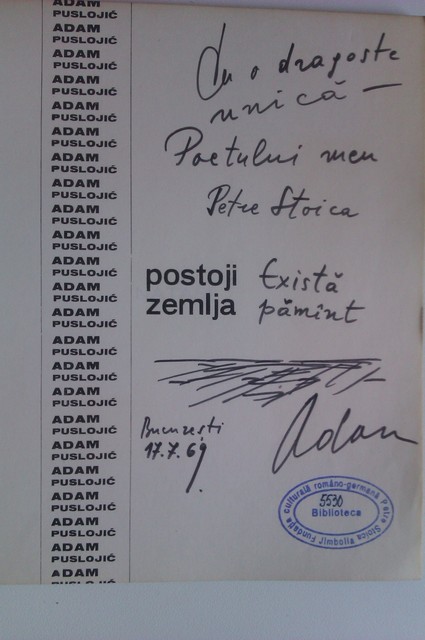 ADAM
PUSLOJIĆ
ADAM
PUSLOJIĆ
ADAM
PUSLOJIĆ
ADAM
PUSLOJIĆ
ADAM
PUSLOJIĆ
ADAM
PUSLOJIĆ
ADAM
PUSLOJIĆ
ADAM
PUSLOJIĆ
ADAM
PUSLOJIĆ
ADAM
PUSLOJIĆ
ADAM
PUSLOJIĆ
ADAM
PUSLOJIĆ
ADAM
PUSLOJIĆ
ADAM
PUSLOJIĆ
ADAM
PUSLOJIĆ
ADAM
PUSLOJIĆ
ADAM
PUSLOJIĆ
ADAM
PUSLOJIĆ
ADAM
PUSLOJIĆ
ADAM
PUSLOJIĆ
ADAM
PUSLOJIĆ
ADAM
PUSLOJIĆ
ADAM
Cu o dragoste
unică —
Poetului meu
Petre Stoica
postoji
zemlja
Există
pămînt
București
17.7.69
Adam
Fundaţia culturală româno-germană Petre Stoica Jimbolia
5530
Biblioteca